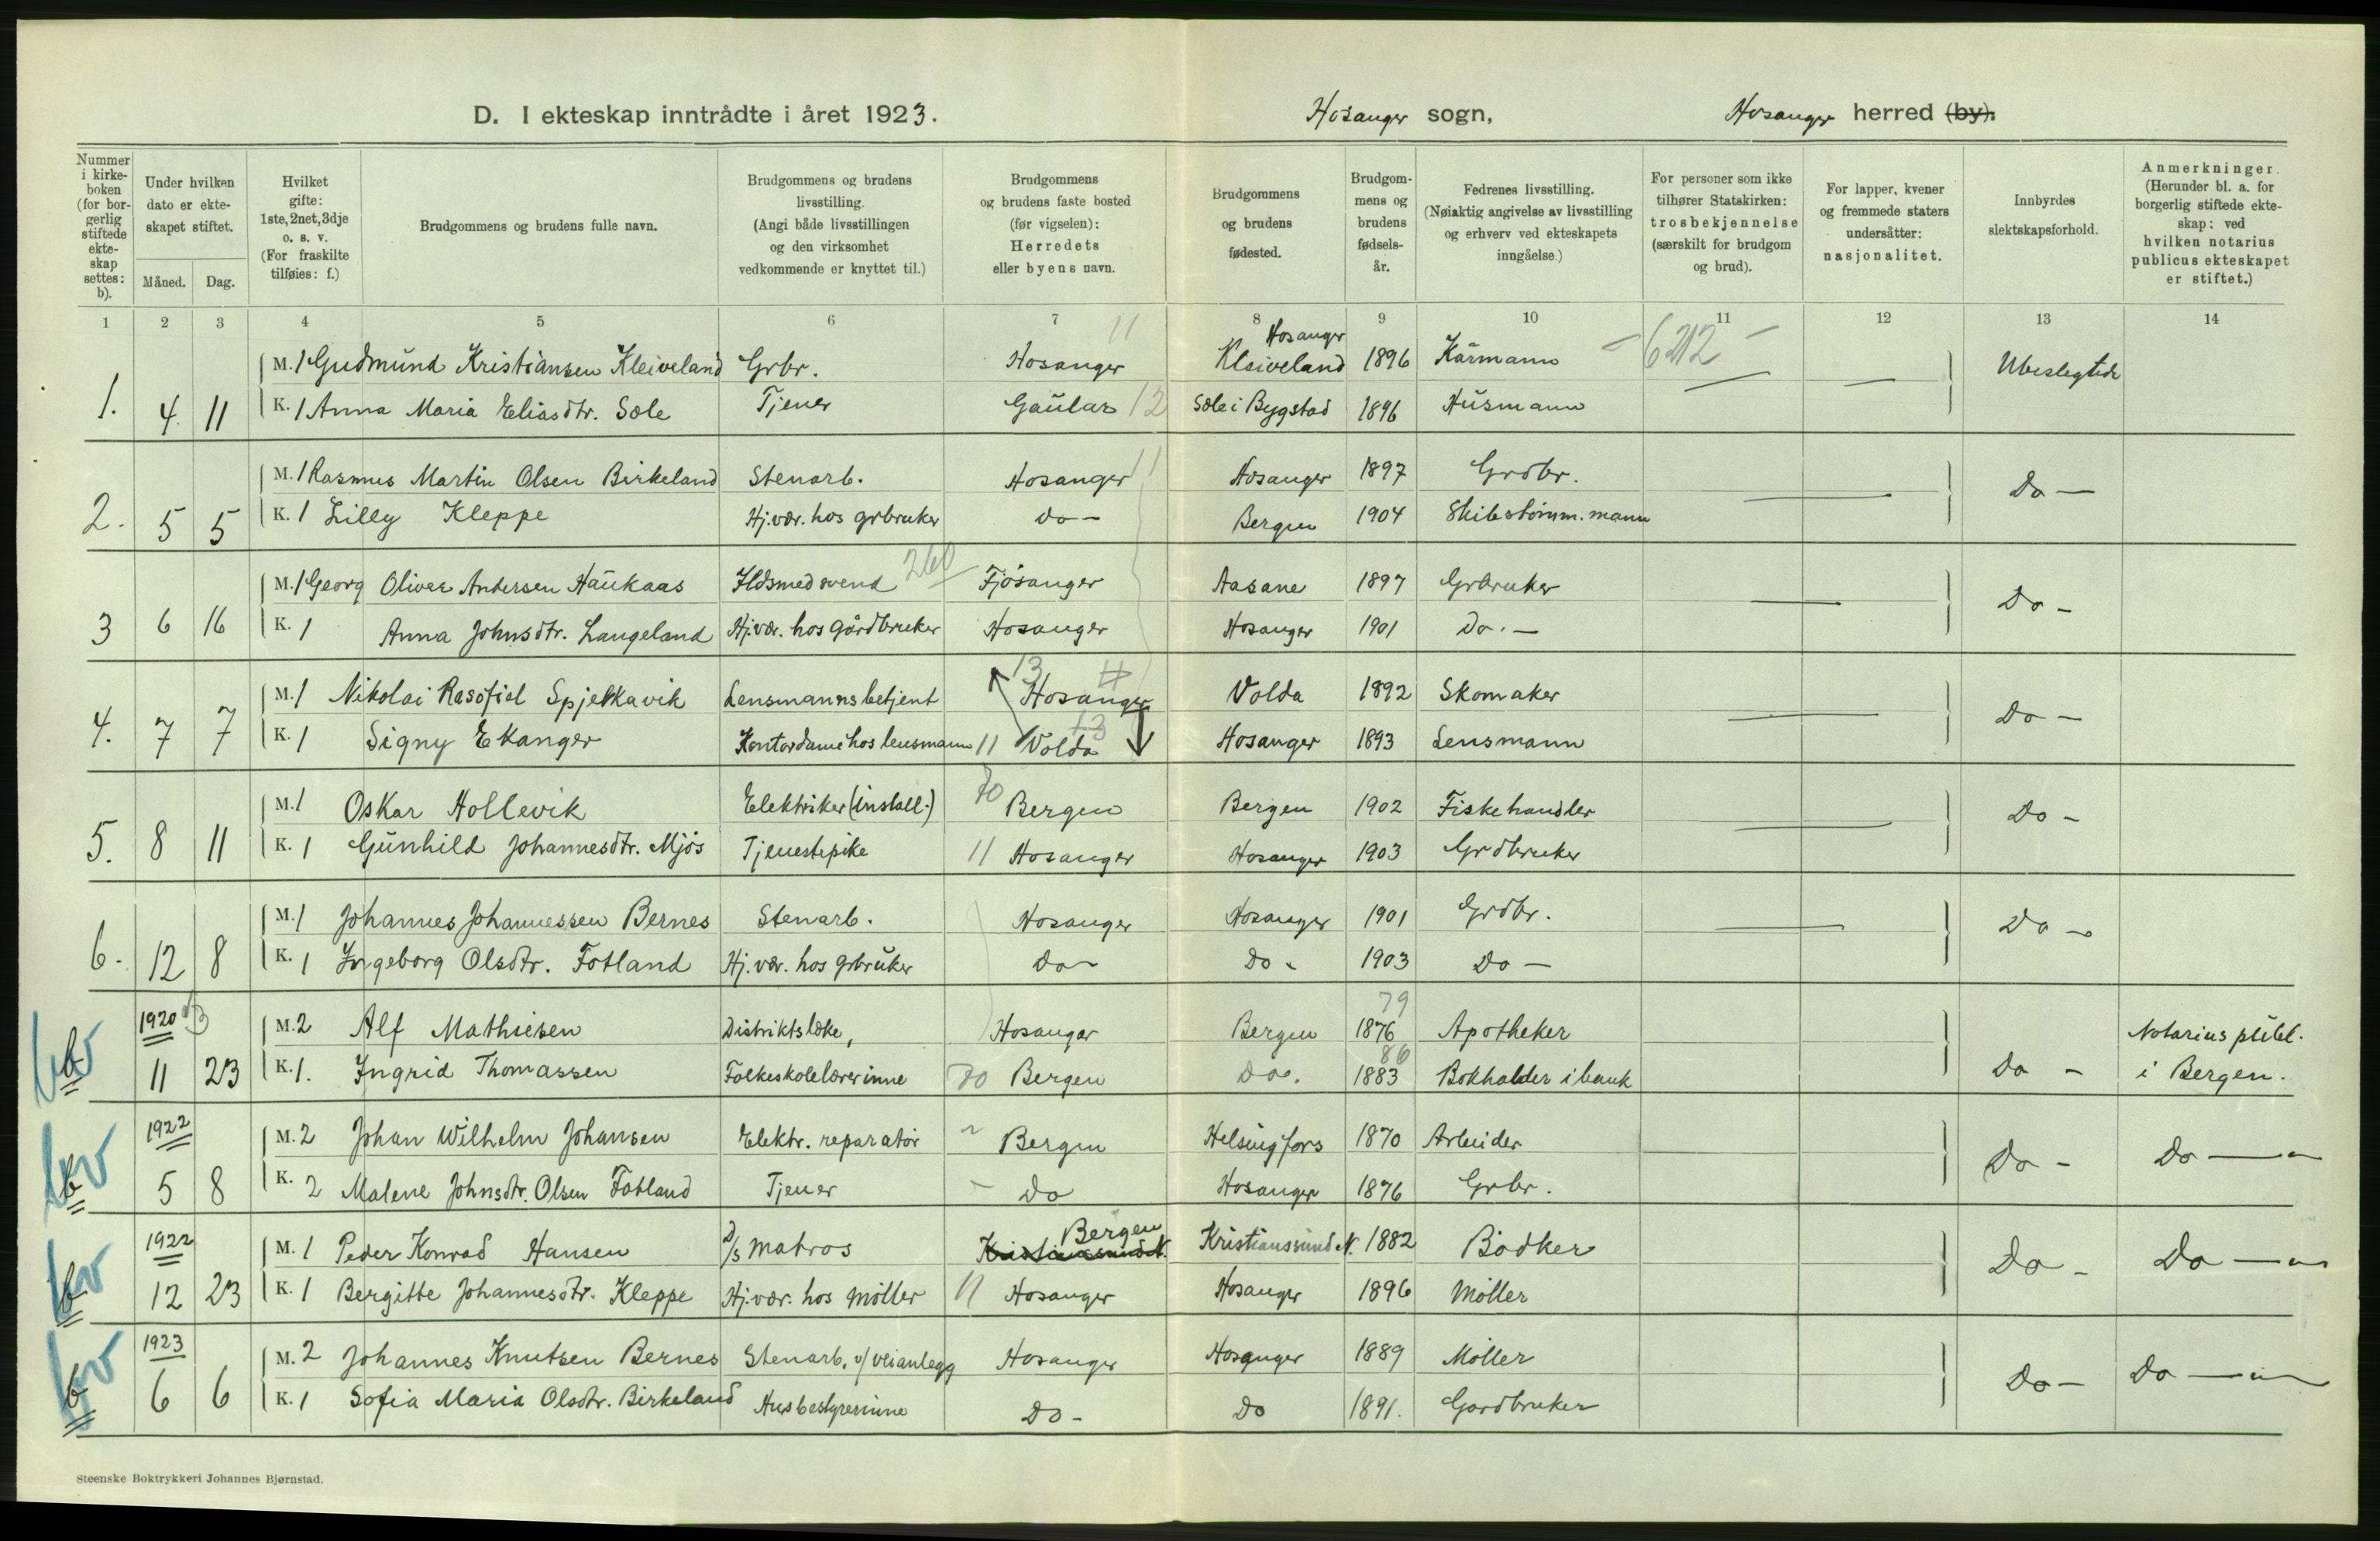 D. I ekteskap inntrådte i året 1923. Hosanger sogn, Hosanger herred (by).
Nummer i kirkeboken (for borgerlig stiftede ekteskap settes: b).
Under hvilken dato er ekteskapet stiftet.
Måned. Dag.
Hvilket gifte: 1ste, 2net, 3dje o. s. v. (For fraskilte tilføies: f.)
Brudgommens og brudens fulle navn.
Brudgommens og brudens livsstilling. (Angi både livsstillingen og den virksomhet vedkommende er knyttet til.)
Brudgommens og brudens faste bosted (før vigselen): Herredets eller byens navn.
Brudgommens og brudens fødested.
Brudgommens og brudens fødselsår.
Fedrenes livsstilling. (Nøiaktig angivelse av livsstilling og erhverv ved ekteskapets inngåelse.)
For personer som ikke tilhører Statskirken: trosbekjennelse (særskilt for brudgom og brud).
For lapper, kvener og fremmede staters undersåtter: nasjonalitet.
Innbyrdes slektskapsforhold.
Anmerkninger. (Herunder bl. a. for borgerlig stiftede ekteskap: ved hvilken notarius publicus ekteskapet er stiftet.)
1 2 3 4 5 6 7 8 9 10 11 12 13 14
11 Hosanger
M. 1 Gudmund Kristiansen Kleiveland Grbr. Hosanger Kleiveland 1896 Kårmann 6212 Ubeslegtede
1. 4. 11 K. 1 Anna Maria Eliasdtr. Sole Tjener Gaular 12 Sole i Bygstad 1896 Husmann
M. 1 Rasmus Martin Olsen Birkeland Stenarb. Hosanger 11 Hosanger 1897 Grdbr. Do —
2. 5 5 K. 1 Lilly Kleppe Hj.vær. hos grbruker do — Bergen 1904 Skibstømm.mann
M. 1 Georg Oliver Andersen Haukaas Ildsmedsvend 260 Fjøsanger Aasane 1897 Grbruker Do —
3 6 16 K. 1 Anna Johnsdtr. Langeland Hj.vær. hos gårdbruker Hosanger Hosanger 1901 Do. —
13 11
M. 1 Nikolai Rasofiel Spjelkavik Lensmannsbetjent Hosanger Volda 1892 Skomaker Do —
13
4. 7 7 K. 1 Signy Ekanger Kontordame hos lensmann 11 Volda Hosanger 1893 Lensmann
M. 1 Oskar Hollevik Elektriker (install.) 70 Bergen Bergen 1902 Fiskehandler Do —
5. 8 11 K. 1 Gunhild Johannesdtr. Mjøs Tjenestepike 11 Hosanger Hosanger 1903 Grdbruker
M. 1 Johannes Johannessen Bernes Stenarb. Hosanger Hosanger 1901 Grdbr. Do —
6. 12 8 K. 1 Ingeborg Olsdtr. Fotland Hj.vær. hos grbruker Do — Do — 1903 Do —
79
1920 M. 2 Alf Mathiesen Distriktslæke, Hosanger Bergen 1876 Apotheker Notarius publ.
86
b 11 23 K. 1. Ingrid Thomassen Folkeskolelærerinne 70 Bergen Do. 1883 Bokholder i bank Do — i Bergen.
1922 M. 2 Johan Wilhelm Johansen Elektr. reparatør Bergen Helsingfors 1870 Arbeider Do — Do —
b 5 8 K. 2 Malene Johnsdtr. Olsen Fotland Tjener Do Hosanger 1876 Grbr.
Bergen
1922 M. 1 Peder Konrad Hansen D/s matros Kristianssund N. Kristianssund N. 1882 Bødker Do — Do —
b 12 23 K. 1 Bergitte Johannesdtr. Kleppe Hj.vær. hos møller 11 Hosanger Hosanger 1896 Møller
1923 M. 2 Johannes Knutsen Bernes Stenarb. v/ veianlegg Hosanger Hosanger 1889 Møller Do — Do —
b 6 6 K. 1 Sofia Maria Olsdtr. Birkeland Husbestyrerinne Do — Do 1891. Gardbruker
Steenske Boktrykkeri Johannes Bjørnstad.